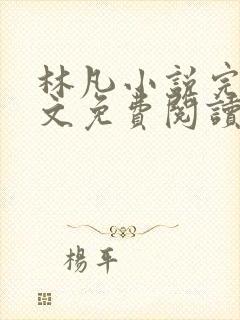 林凡小說完
文免費閱讀
楊平